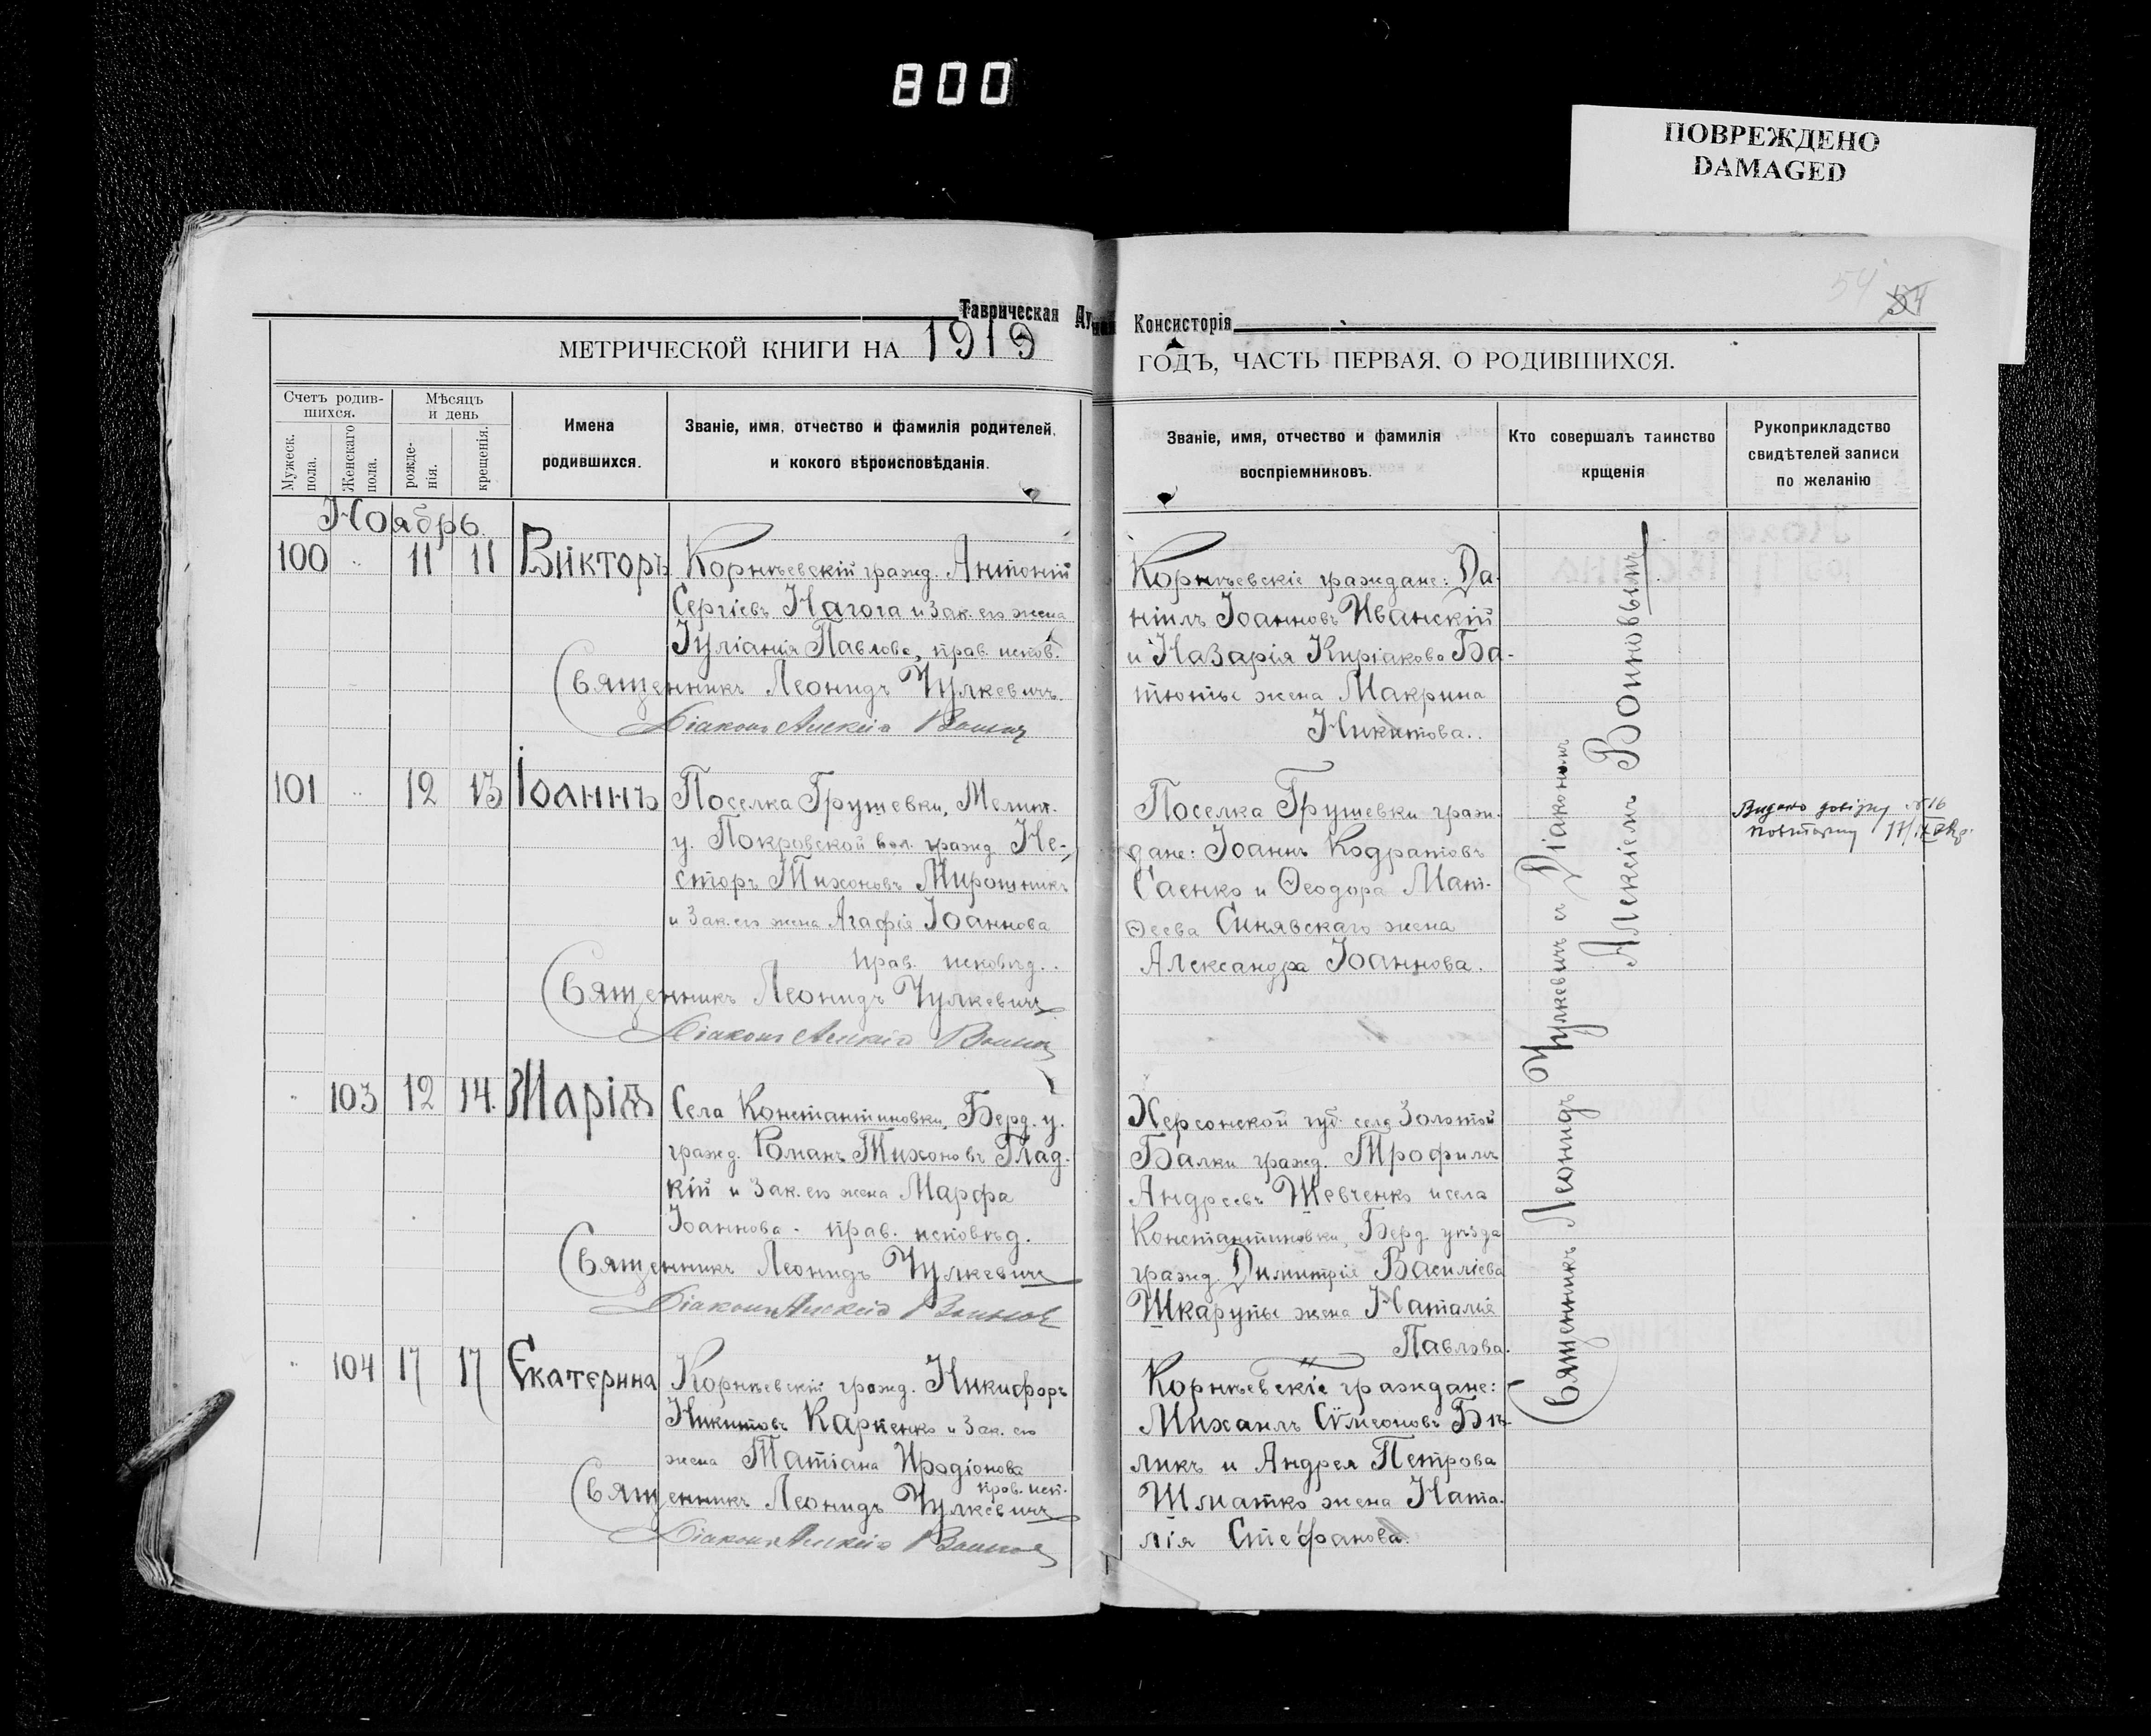 800
ПОВРЕЖДЕНО
DAMAGED
54
Таврическая Ду ная Консисторія
МЕТРИЧЕСКОЙ КНИГИ НА 1919 ГОДЪ, ЧАСТЬ ПЕРВАЯ, О РОДИВШИХСЯ.
Счетъ родив-
шихся.
Мужеск.
пола.
Женскаго
пола.
Мѣсяцъ
и день
рожде-
нія.
крещенія.
Имена
родившихся.
Званіе, имя, отчество и фамилія родителей,
и кокого вѣроисповѣданія.
Званіе, имя, отчество и фамилія
воспріемниковъ.
Кто совершалъ таинство
крщенія
Рукоприкладство
свидѣтелей записи
по желанію
Ноябрь.
100 11 11 Викторъ
Корнѣевскій гражд. Антоній
Сергіевъ Нагога и зак. его жена
Іуліанія Павлова, прав. испов.
Священникъ Леонидъ Чулкевичъ.
Діаконъ Алексій Воинов
Корнѣевскіе граждане: Да-
ніилъ Іоанновъ Иванскій
и Назарія Киріакова Ба-
тюты жена Макрина
Никитова.
101 12 13 Іоаннъ
Поселка Грушевки, Мелит.
у. Покровской вол. гражд. Не-
сторъ Тихоновъ Мирошникъ
и зак. его жена Агафія Іоаннова
прав. исповѣд.
Священникъ Леонидъ Чулкевичъ
Діаконъ Алексій Воинов
Поселка Грушевки граж-
дане: Іоаннъ Кодратовъ
Саенко и Ѳеодора Мат-
ѳеева Синявскаго жена
Александра Іоаннова.
Видано довідку №16
повторну 17/IX
103 12 14. Марія
Села Константиновки, Берд. у.
гражд. Романъ Тихоновъ Глад-
кій и зак. его жена Марфа
Іоаннова - прав. исповѣд.
Священникъ Леонидъ Чулкевичъ
Діаконъ Алексій Воинов
Херсонской губ. села Золотой
Балки гражд. Трофимъ
Андреевъ Шевченко и села
Константиновки, Берд. уѣзда
гражд. Димитрія Василіева
Шкарупы жена Наталія
Павлова.
104 17 17 Екатерина
Корнѣевскій гражд. Никифоръ
Никитовъ Карпенко и зак. его
жена Татіана Иродіонова
прав. исп.
Священникъ Леонидъ Чулкевичъ
Діаконъ Алексій Воинов
Корнѣевскіе граждане:
Михаилъ Сѵмеоновъ Бѣ-
ликъ и Андрея Петрова
Шматко жена Ната-
лія Стефанова.
Священникъ Леонидъ Чулкевичъ съ Діакономъ
Алексіемъ Воиновымъ